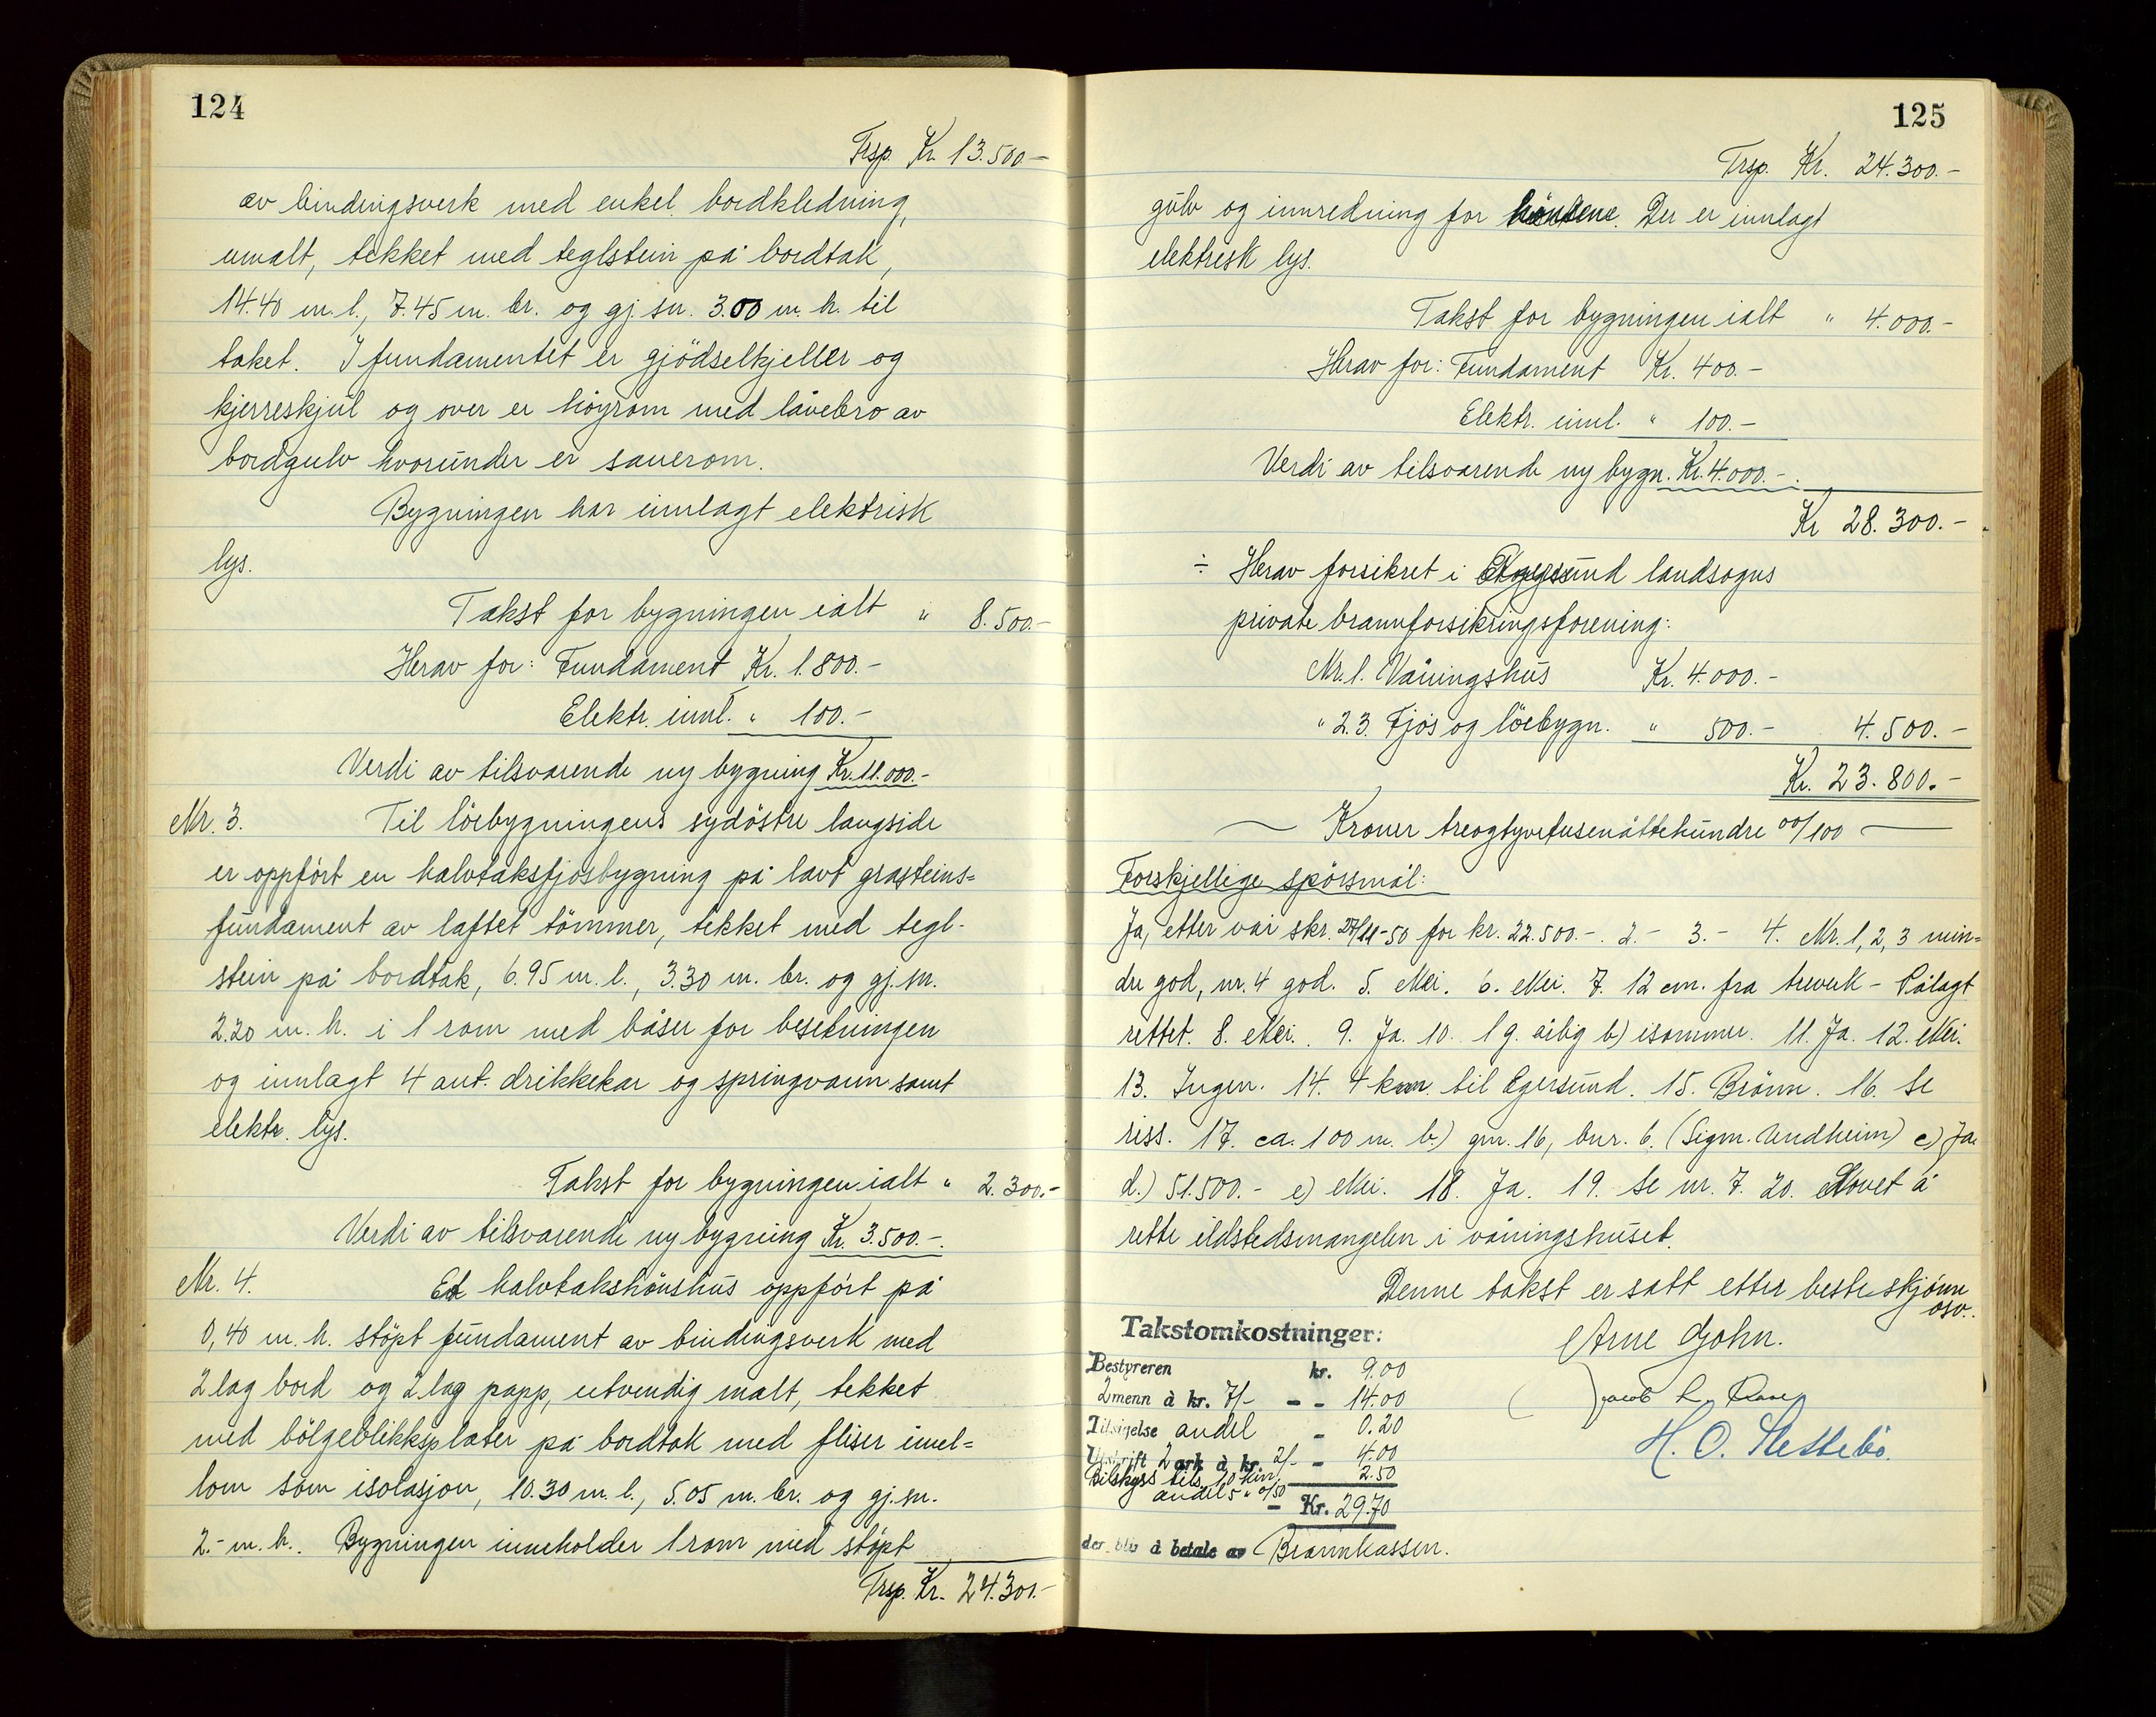 124
Trsp. Kr. 13.500.-
av bindingsverk med enkel bordkledning,
umalt, tekket med teglstein på bordtak,
14.40 m. l., 7.45 m. br. og gj. sn. 3.00 m. h. til
taket. I fundamentet er gjödselkjeller og
kjerreskjul og over er höyrom med låvebro av
bordgulv hvorunder er sauerom.
Bygningen har innlagt elektrisk
lys.
Takst for bygningen ialt " 8.500.-
Herav for: Fundament Kr. 1.800.-
Elektr. innl. " 100.-
Verdi av tilsvarende ny bygning Kr. 11.000.-
Nr. 3. Til löebygningens sydöstre langside
er oppfört en halvtaksfjosbygning på lavt grasteins=
fundament av laftet tömmer, tekket med tegl-
stein på bordtak, 6.95 m. l., 3.30 m. br. og gj. sn.
2.20 m. h. i 1 rom med båser for besetningen
og innlagt 4 aut. drikkekar og springvann samt
elektr. lys.
Takst for bygningen ialt " 2.300.-
Verdi av tilsvarende ny bygning Kr. 3.500.-.
Nr. 4. Et halvtakshönshus oppfört på
0,40 m. h. stöpt fundament av bindingsverk med
2 lag bord og 2 lag papp, utvendig malt, tekket
med bölgeblikksplater på bordtak med fliser imel=
lom som isolasjon, 10.30 m. l., 5.05 m. br. og gj. sn.
2.- m. h.. Bygningen inneholder 1 rom med stöpt
Trsp. Kr. 24.300.-
125
Trsp. Kr. 24.300.-
gulv og innredning for hönsene. Der er innlagt
elektrisk lys.
Takst for bygningen ialt " 4.000.-
Herav for: Fundament Kr. 400.-
Elektr. innl. " 100.-
Verdi av tilsvarende ny bygn. Kr. 4.000.-.
Kr 28.300.-
÷ Herav forsikret i Egersund landsogns
private brannforsikringsforening:
Nr. 1. Våningshus Kr. 4.000.-
" 2.3. Fjös og löebygn. " 500.- 4.500.-
Kr. 23.800.-
Kroner treogtyvetusenåttehundre 00/100
Forskjellige spörsmål:
Ja, etter vår skr. 27/11-50 for kr. 22.500.-. 2.- 3.- 4. Nr. 1, 2, 3 min=
dre god, nr. 4 god. 5. Nei. 6. Nei. 7. 12 cm. fra treverk - Pålagt
rettet. 8. Nei. 9. Ja. 10. 1 g. årlig b) isommer. 11. Ja. 12. Nei.
13. Ingen. 14. 4 km til Egersund. 15. Brönn. 16. Se
riss. 17. ca. 100 m. b.) gnr. 16, bnr. 6. (Sigm. Undheim) c) Ja
d.) 51.500.- e) Nei. 18. Ja. 19. Se nr. 7. 20. Lovet å
rette ildstedsmangelen i våningshuset.
Denne takst er satt etter beste skjönn
osv..
Takstomkostninger:
Arne Gjohn.
Bestyreren kr. 9.00
2 menn à kr. 7/- - - 14.00
Jacob L.
Tilsigelse andel - 0.20
H. O. Hestebö.
Utskrift 2 ark à kr. 2/- - 4.00
Bilskyss tils. 10 km 2.50
andel 5 " 0/50
- Kr. 29.70
der blir å betale av Brannkassen.